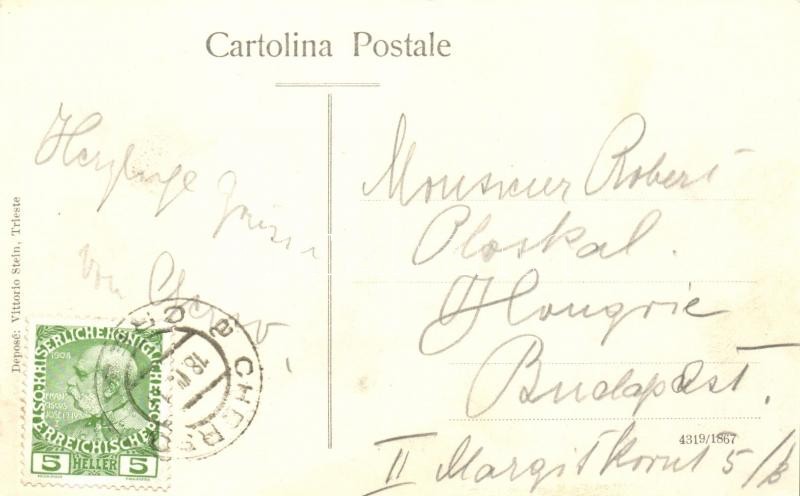 Cartolina Postale
Herzliche Grüsse
von Cherso.
Monsieur Robert
Ploskal.
Hongrie
Budapest.
II Margit Körút 5/b
4319/1867
Deposé: Vittorio Stein, Trieste
1908
5 HELLER 5
CHERSO
18